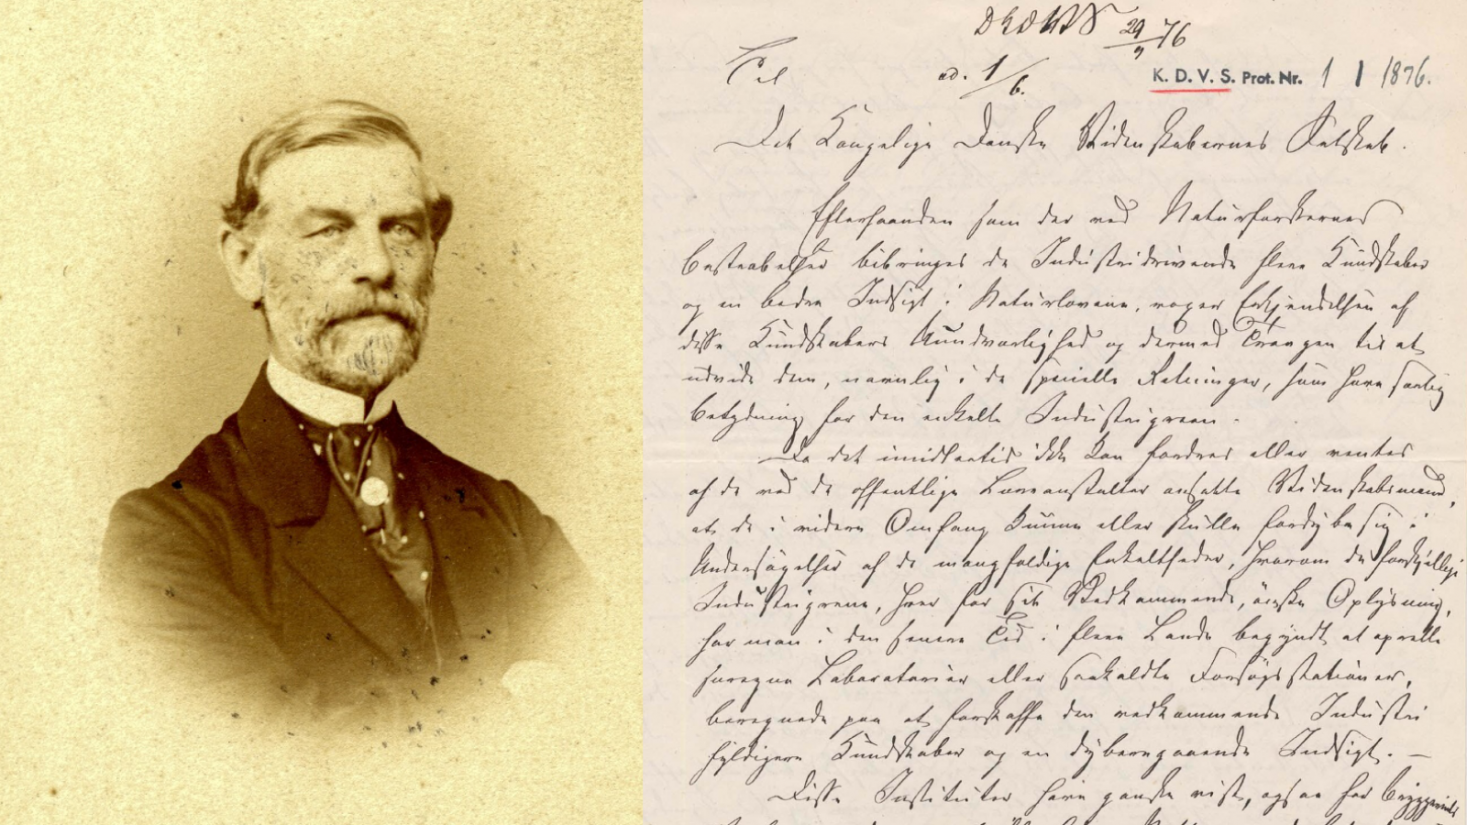 29/9 76
Til
ad. 1/6.
K. D. V. S. Prot. Nr. 1 1 1876.
Det Kongelige Danske Videnskabernes Selskab.
Efterhaanden som der ved Naturforskernes
Bestræbelser bibringes de Industridrivende flere Kundskaber
og en bedre Indsigt i Naturlovene, voxer Erkjendelsen af
disse Kundskabers Uundværlighed og dermed Trangen til at
udvide dem, navnlig i de specielle Retninger, som have særlig
Betydning for den enkelte Industrigreen.
Da det imidlertid ikke kan fordres eller ventes
af de ved de offentlige Læreanstalter ansatte Videnskabsmænd,
at de i videre Omfang kunne eller skulle fordybe sig i
Undersøgelser af de mangfoldige Enkeltheder, hvorom de forskjellige
Industrigrene, hver for sit Vedkommende, ønske Oplysning,
har man i den senere Tid i flere Lande begyndt at oprette
særegne Laboratorier eller saakaldte Forsøgsstationer,
beregnede paa at forskaffe den vedkommende Industri
fyldigere Kundskaber og en dyberegaaende Indsigt. —
Disse Instituter have ganske vist, ogsaa for